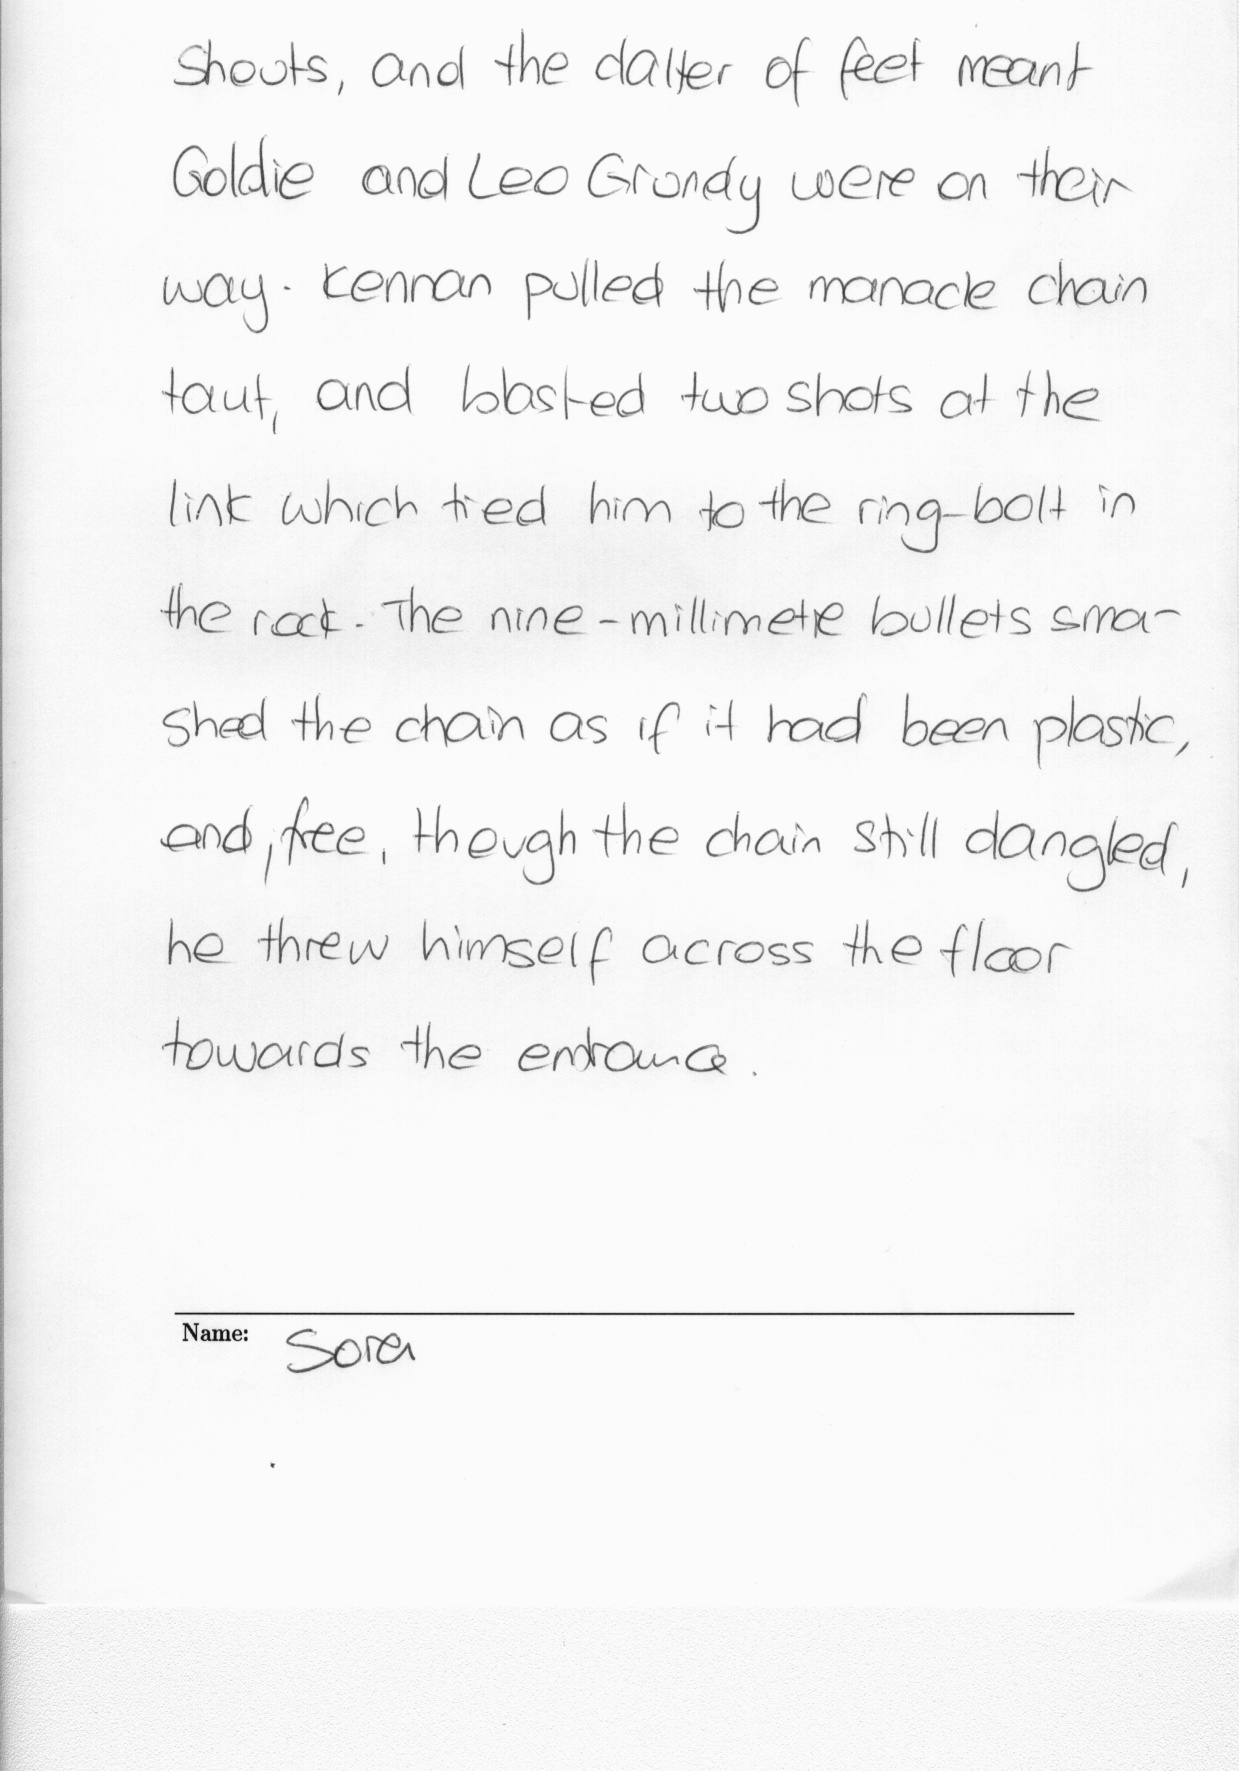 Shouts, and the clatter of feet meant
Goldie and Leo Grundy were on their
way. Kennan pulled the manacle chain
taut, and blasted two shots at the
link which tied him to the ring-bolt in
the rock. The nine-millimetre bullets sma-
shed the chain as if it had been plastic,
and, free, though the chain still dangled,
he threw himself across the floor
towards the entrance.
Name: Sora